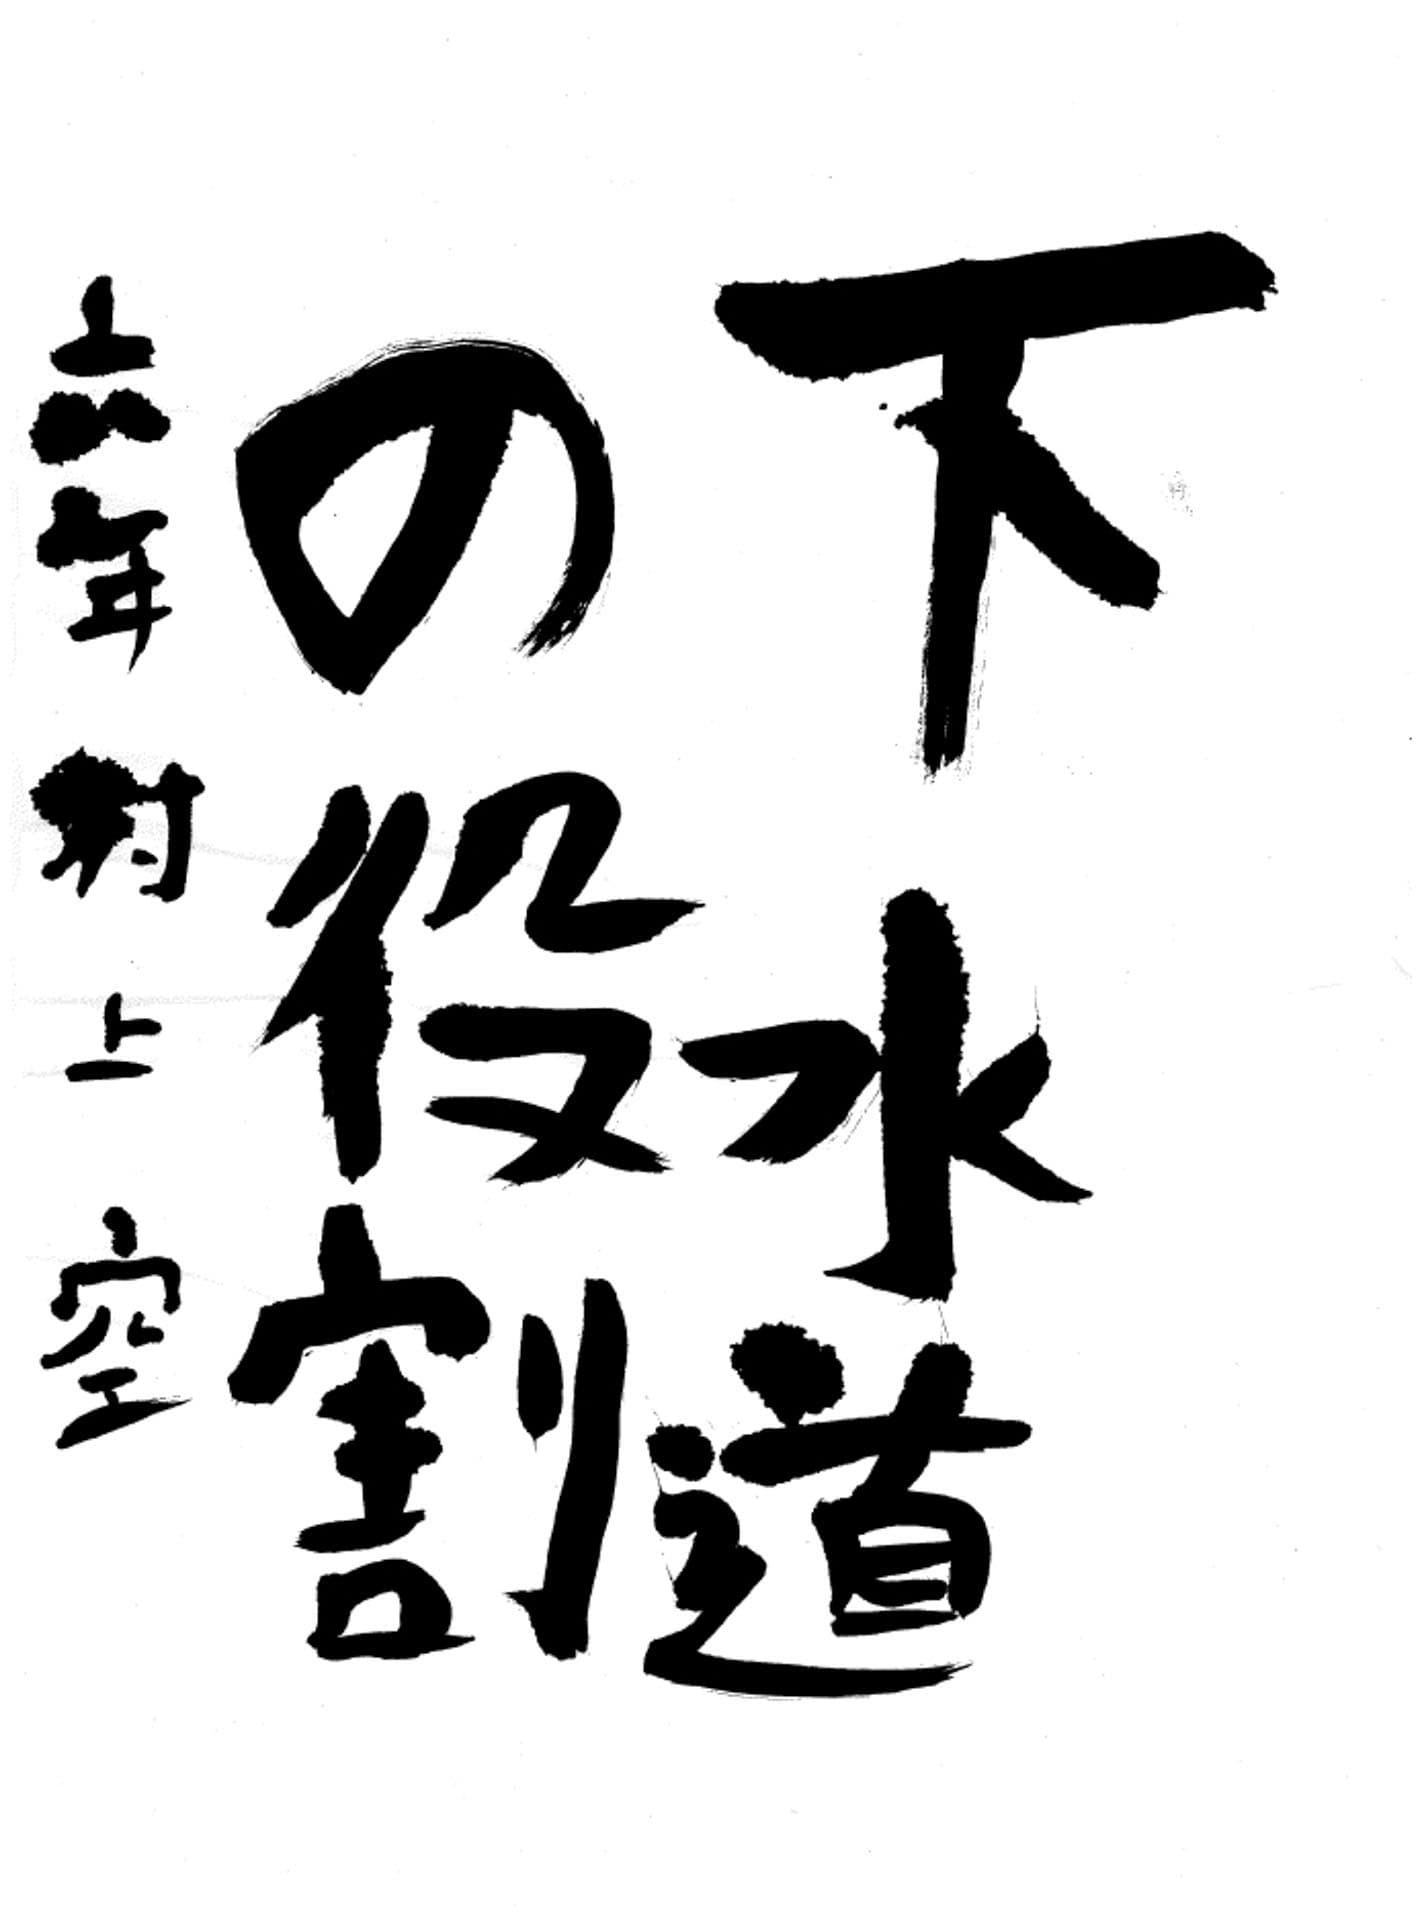 下水道
の役割
六年 村上 空